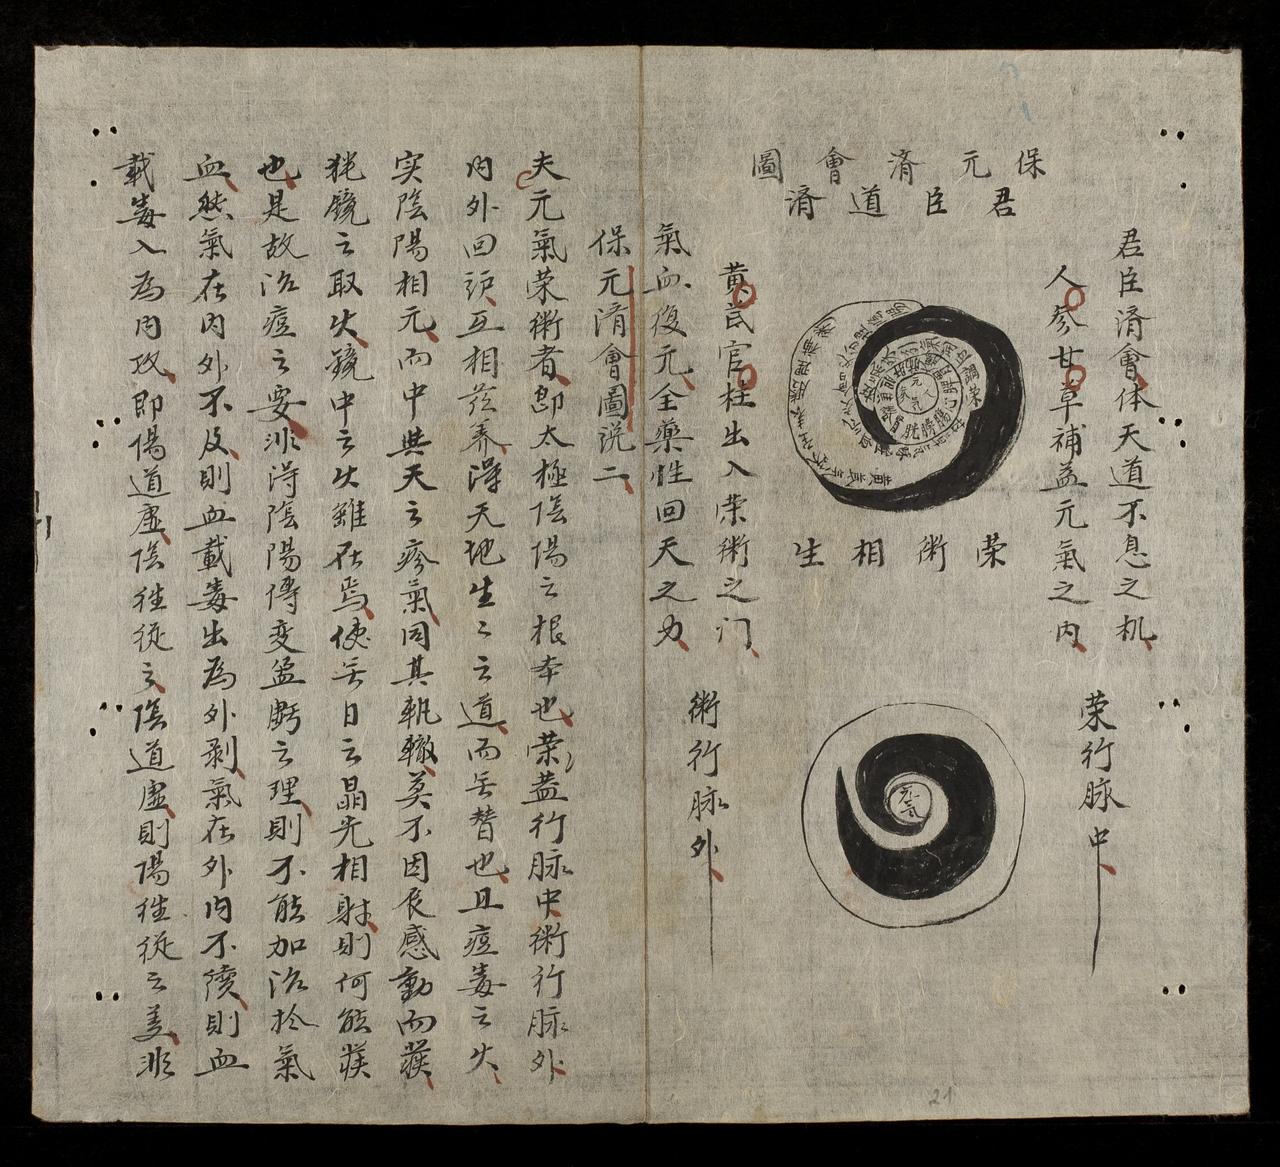 保元濟會圖
君臣道濟
君臣濟會体天道不息之机
人参甘草補益元氣之内
荣術相生
荣行脉中
術行脉外
黄芪官桂出入荣術之门
氣血復元全藥性回天之力
保元濟會圖説二
夫元氣荣術者即太極陰陽之根本也荣益行脉中術行脉外
内外回护互相茲养得天地生々之道而无替也且痘毒之火
实陰陽相元而中共天之疹氣同其軌轍莫不因辰感動而發
犹鏡之取火鏡中之火雖在焉使无日之晶光相射則何能發
也是故治痘之要非得陰陽傳变盈虧之理則不能加治於氣
血然氣在内外不及則血載毒出為外剥氣在外内不續則血
載毒入為内攻即陽道虚陰徃從之陰道虚則陽徃從之羙非
21